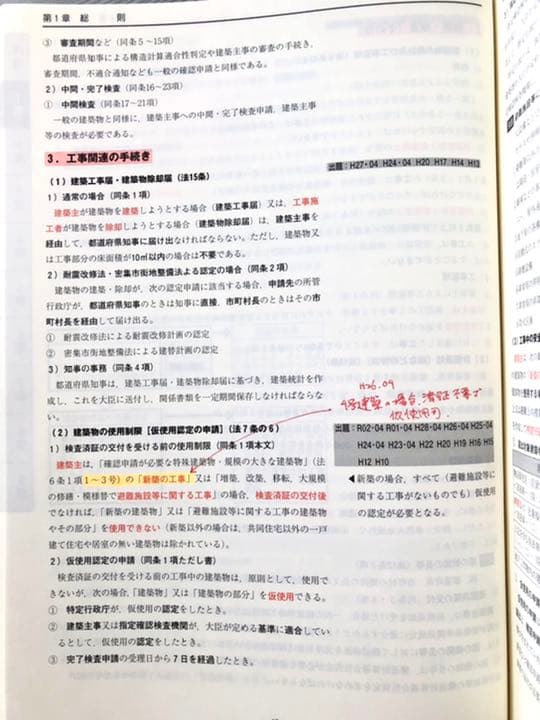 第1章　総　則
③　審査期間など（同条5～15項）
都道府県知事による構造計算適合性判定や建築主事の審査の手続き、
審査期間、不適合通知なども一般の確認申請と同様である。
2）中間・完了検査（同条16～23項）
①　中間検査（同条17～21項）
一般の建築物と同様に、建築主事への中間・完了検査申請、建築主事
等の検査が必要である。
3．工事関連の手続き
出題：H27・04　H24・04　H20　H17　H14　H13
（1）建築工事届・建築物除却届（法15条）
1）通常の場合（同条1項）
建築主が建築物を建築しようとする場合（建築工事届）又は、工事施
工者が建築物を除却しようとする場合（建築物除却届）は、建築主事を
経由して、都道府県知事に届け出なければならない。ただし、建築物又
は工事部分の床面積が10㎡以内の場合は不要である。
2）耐震改修法・密集市街地整備法による認定の場合（同条2項）
建築物の建築・除却が、次の認定申請に該当する場合、申請先の所管
行政庁が、都道府県知事のときは知事に直接、市町村長のときはその市
町村長を経由して届け出る。
①　耐震改修法による耐震改修計画の認定
②　密集市街地整備法による建替計画の認定
3）知事の事務（同条4項）
都道府県知事は、建築工事届・建築物除却届に基づき、建築統計を作
成し、これを大臣に送付し、関係書類を一定期間保存しなければならな
い。
H26.09
4号建築の場合、済証不要で
仮使用可.
（2）建築物の使用制限【仮使用認定の申請】（法7条の6）
出題：R02・04　R01・04　H28・04　H25・04
H24・04　H23・04　H21　H19　H18　H16
H12　H10
1）検査済証の交付を受ける前の使用制限（同条1項本文）
建築主は、「確認申請が必要な特殊建築物・規模の大きな建築物」（法
6条1項1～3号）の「新築の工事」又は「増築、改築、移転、大規模
の修繕・模様替で避難施設等に関する工事」の場合、検査済証の交付後
でなければ、「新築の建築物」又は「避難施設等に関する工事の建築物
やその部分」を使用できない（新築以外の場合は、共同住宅以外の一戸
建て住宅や居室の無い建築物は除かれている）。
◀新築の場合、すべて（避難施設等に
関する工事がないものでも）仮使用
の認定が必要となる。
2）仮使用認定の申請（同条1項ただし書）
検査済証の交付を受ける前の工事中の建築物は、原則として、使用で
きないが、次の場合、「建築物」又は「建築物の部分」を仮使用できる。
①　特定行政庁が、仮使用の認定をしたとき。
②　建築主事又は指定確認検査機関が、大臣が定める基準に適合してい
るとして、仮使用の認定をしたとき。
③　完了検査申請の受理日から7日を経過したとき。